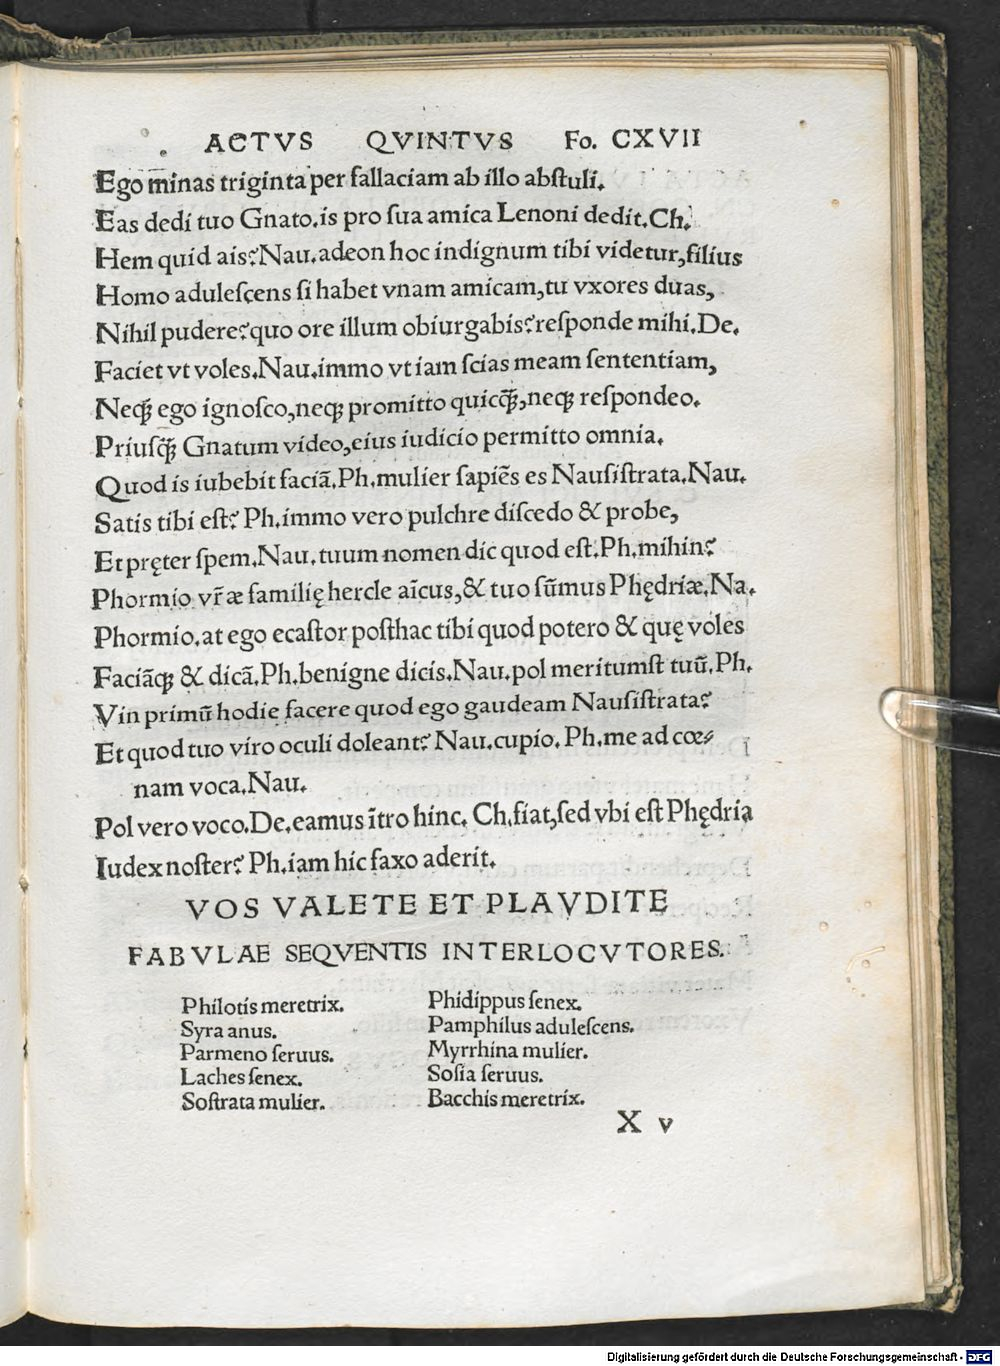 ACTVS QVINTVS Fo. CXVII
Ego m̅inas triginta per fallaciam ab illo abſtuli.
Eas dedi tuo Gnato.is pro ſua amica Lenoni dedit.Ch.
Hem quid ais?Nau.adeon hoc indignum tibi videtur,filius
Homo aduleſcens ſi habet vnam amicam,tu vxores duas,
Nihil pudere?quo ore illum obiurgabis?reſponde mihi.De.
Faciet vt voles.Nau.immo vt iam ſcias meam ſententiam,
Neqꝫ ego ignoſco,neqꝫ promitto quicq̃ꝫ,neqꝫ reſpondeo.
Priuſq̃ꝫ Gnatum video,eius iudicio permitto omnia.
Quod is iubebit faciã.Ph.mulier ſapiẽs es Nauſiſtrata.Nau.
Satis tibi eſt? Ph.immo vero pulchre diſcedo & probe,
Et pręter ſpem.Nau.tuum nomen dic quod eſt.Ph.mihin?
Phormio vr̃æ familię hercle aĩcus,& tuo ſũmus Phędriæ.Na.
Phormio.at ego ecaſtor poſthac tibi quod potero & quę voles
Faciãqꝫ & dicã.Ph.benigne dicis.Nau.pol meritumſt tuũ.Ph.
Vin primũ hodie facere quod ego gaudeam Nauſiſtrata?
Et quod tuo viro oculi doleant? Nau.cupio. Ph.me ad cœ⸗
nam voca.Nau.
Pol vero voco.De.eamus ĩtro hinc. Ch.fiat,ſed vbi eſt Phędria
Iudex noſter? Ph.iam hic faxo aderit.
VOS VALETE ET PLAVDITE
FABVLAE SEQVENTIS INTERLOCVTORES.
Philotis meretrix. Phidippus ſenex.
Syra anus. Pamphilus aduleſcens.
Parmeno ſeruus. Myrrhina mulier.
Laches ſenex. Soſia ſeruus.
Soſtrata mulier. Bacchis meretrix.
X v
Digitalisierung gefördert durch die Deutsche Forschungsgemeinschaft - DFG